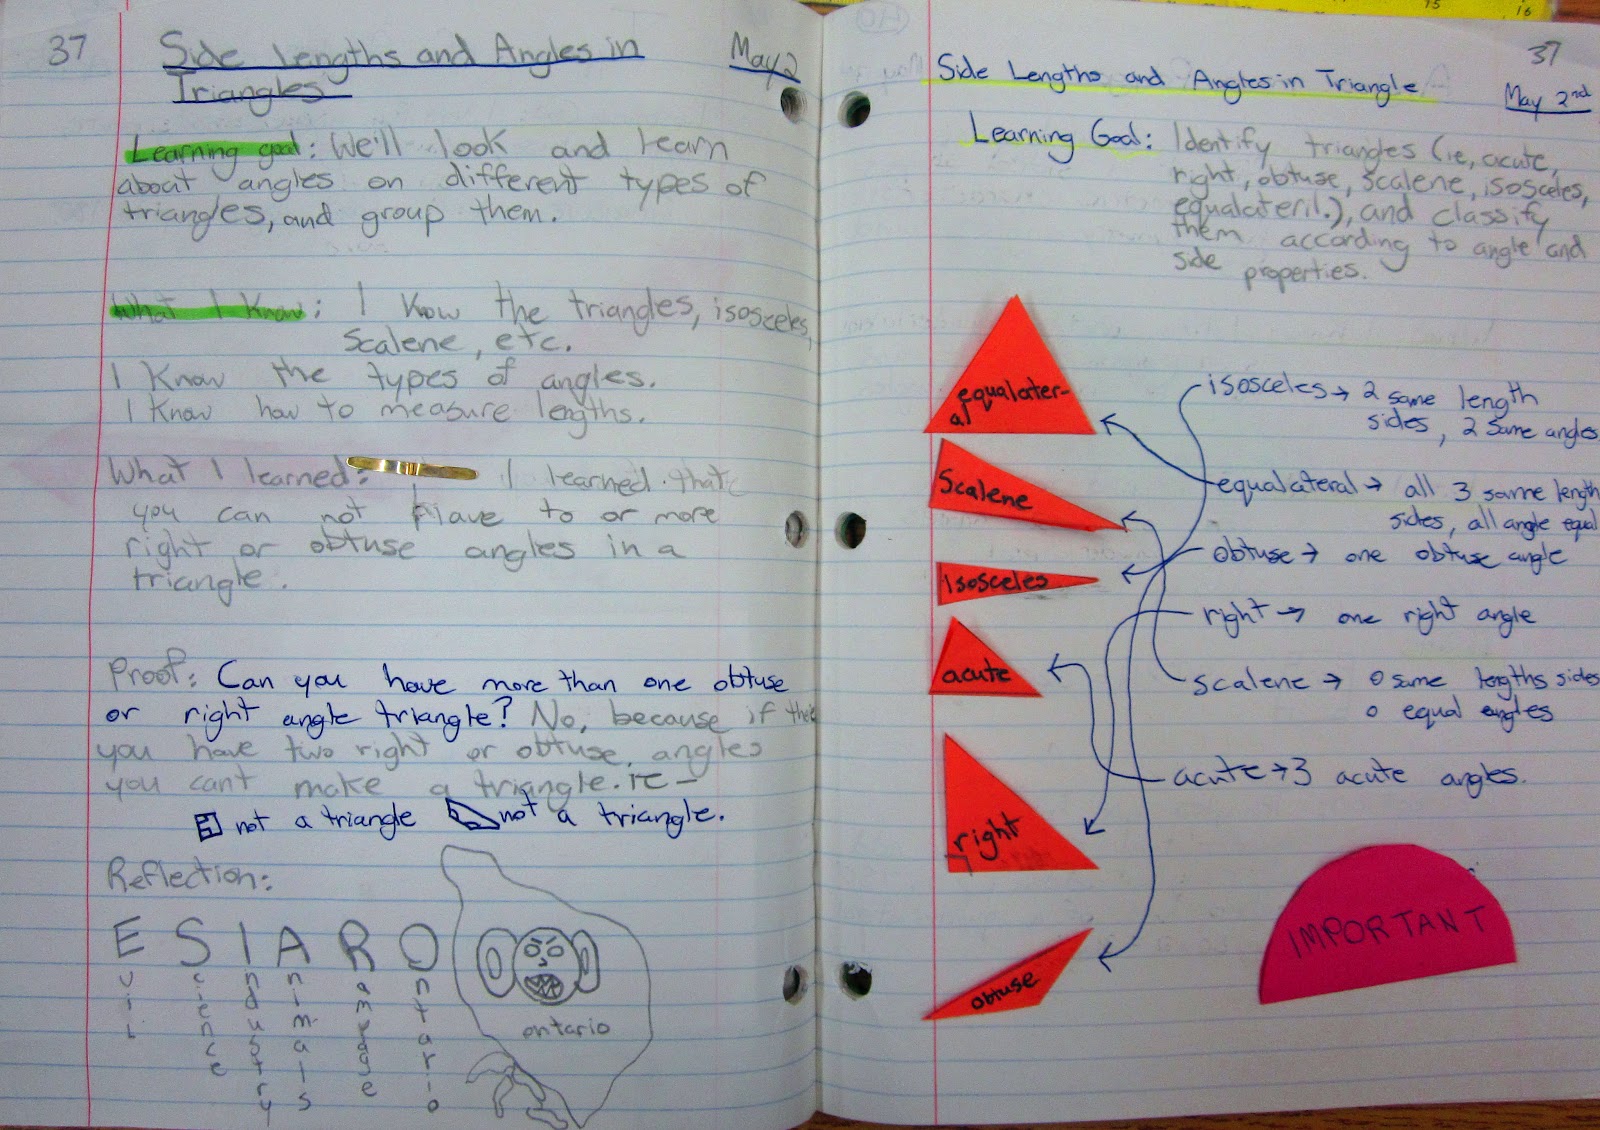 37
Side Lengths and Angles in
Triangles
May 2
Learning goal: We'll look and learn
about angles on different types of
triangles, and group them.
What I Know: I Know the triangles, isosceles,
Scalene, etc.
I Know the types of angles.
I Know how to measure lengths.
What I learned: I learned that
you can not have to or more
right or obtuse angles in a
triangle.
Proof: Can you have more than one obtuse
or right angle triangle? No, because if
you have two right or obtuse angles
you cant make a triangle. ie -
not a triangle not a triangle.
Reflection:
E S I A R O
Evil
Science
Industry
Animals
Rampage
Ontario
ontario
15
16
37
Side Lengths and Angles in Triangle
May 2nd
Learning Goal: Identify triangles (ie, acute,
right, obtuse, scalene, isosceles,
equalateril.), and classify
them according to angle and
side properties.
equalater-
al
Scalene
Isosceles
acute
right
obtuse
isosceles → 2 same length
sides, 2 same angles
equalateral → all 3 same length
sides, all angle equal
obtuse → one obtuse angle
right → one right angle
scalene → 0 same lengths sides
0 equal angles
acute → 3 acute angles.
IMPORTANT